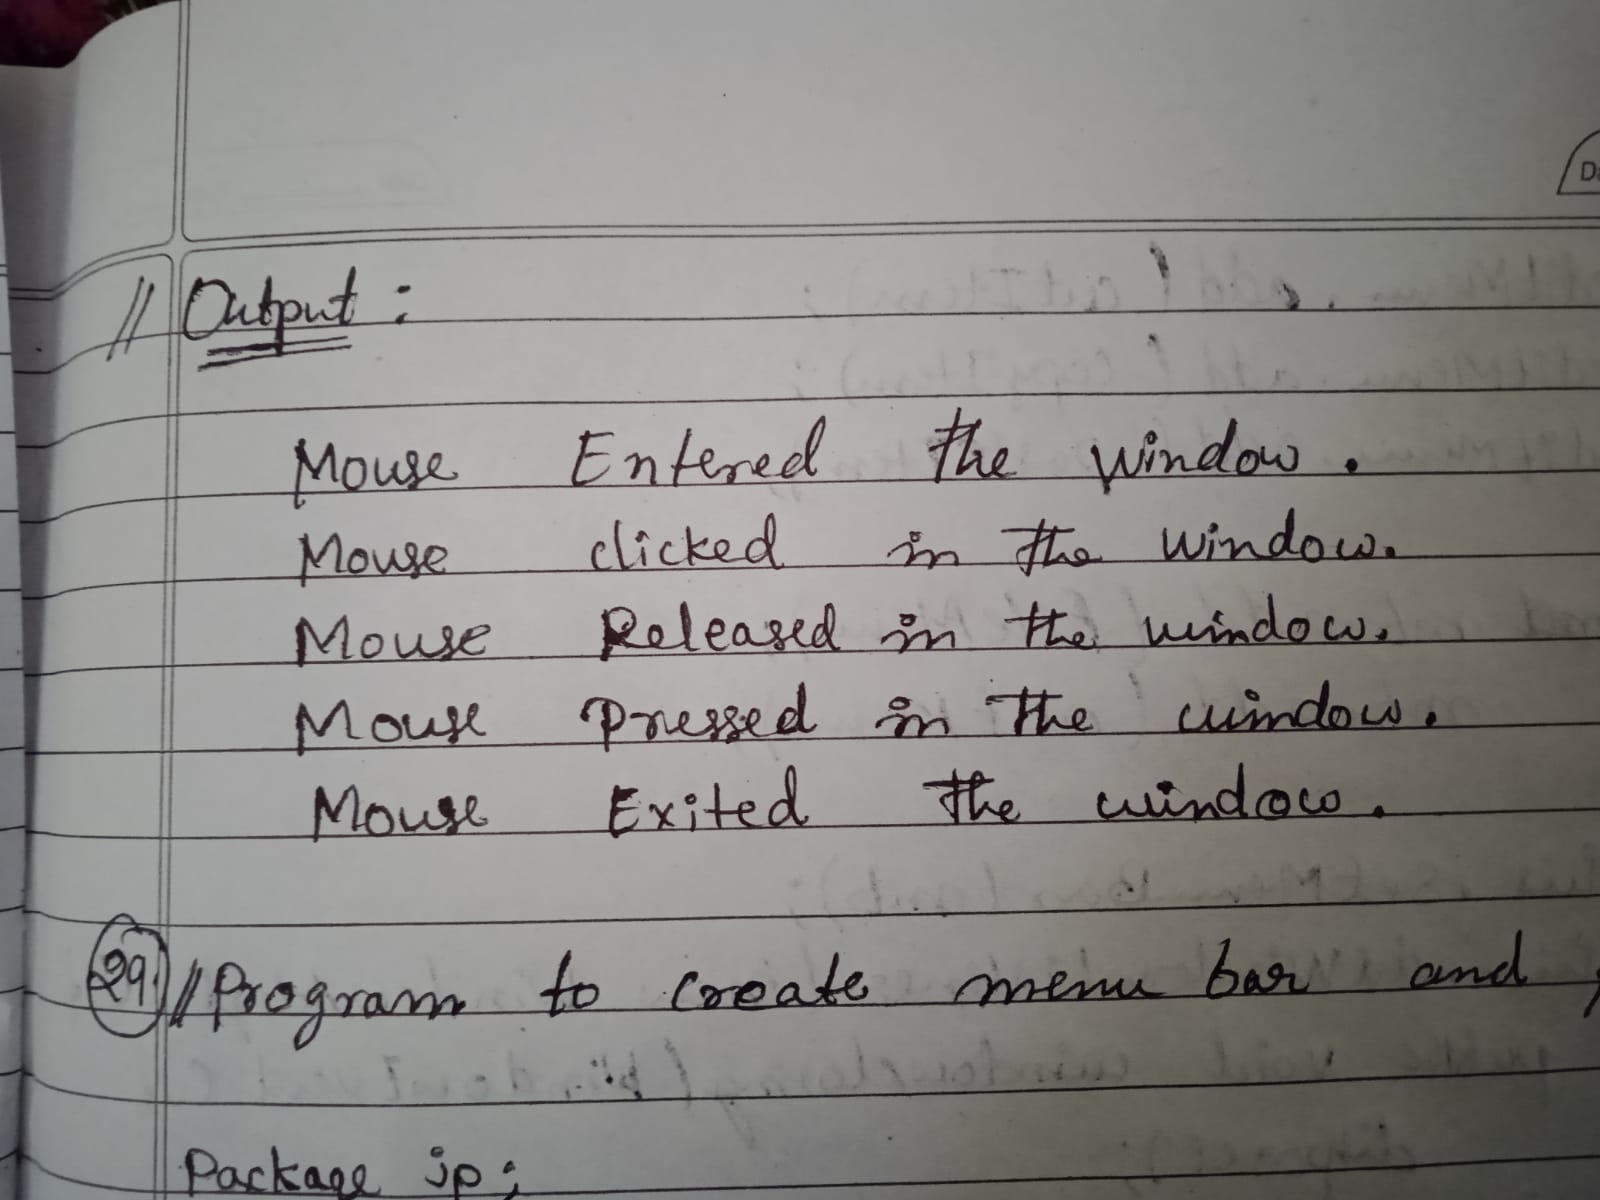 // Output :
Mouse Entered the window.
Mouse clicked in the window.
Mouse Released in the window.
Mouse pressed in the window.
Mouse Exited the window.
29. // Program to create menu bar and
Package jp;